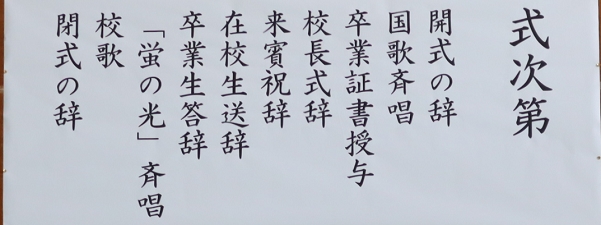 式次第
開式の辞
国歌斉唱
卒業証書授与
校長式辞
来賓祝辞
在校生送辞
卒業生答辞
「蛍の光」斉唱
校歌
閉式の辞